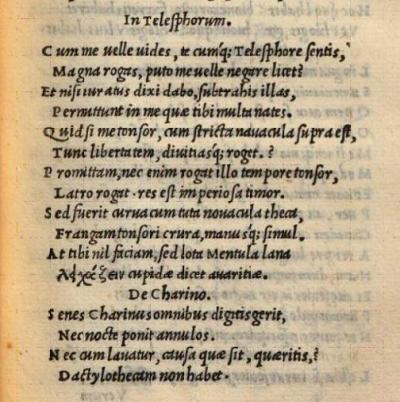 In Telesphorum.
Cum me uelle uides, te cumq; Telesphore sentis,
Magna rogas, puto me uelle negare licet?
Et nisi iuratus dixi dabo, subtrahis illas,
Permittunt in me quæ tibi multa nates.
Quid si me tonsor, cum stricta nauacula supra est,
Tunc libertatem, diuitiasq; roget.?
Promittam, nec enim rogat illo tempore tonsor,
Latro rogat. res est imperiosa timor.
Sed fuerit curua cum tuta nouacula theca,
Frangam tonsori crura, manusq; simul.
At tibi nil faciam, sed lota Mentula lana
cupidæ dicet auaritiæ.
De Charino.
Senes Charinus omnibus digitis gerit,
Nec nocte ponit annulos.
Nec cum lauatur, causa quæ sit, quæritis,?
Dactylothecam non habet.